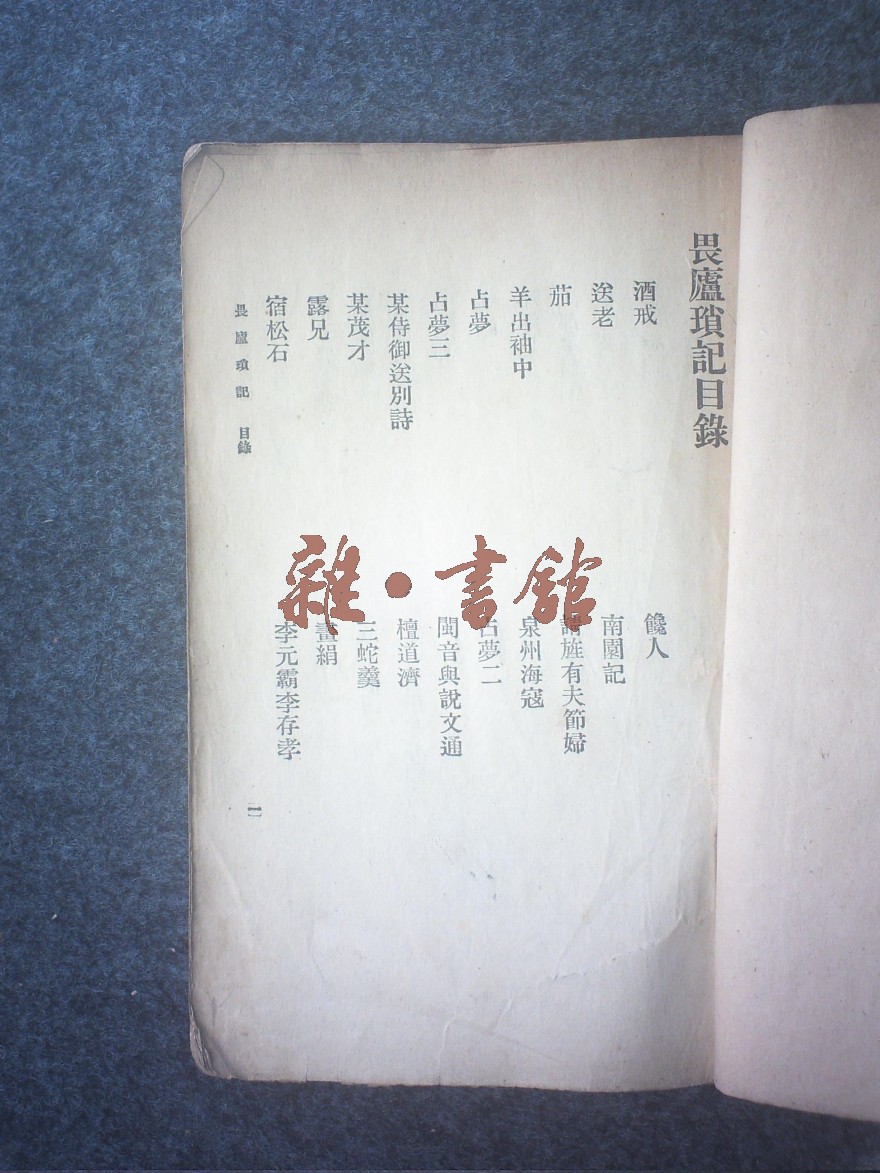 畏廬瑣記目錄
酒戒
饞人
送老
南園記
茄
請旌有夫節婦
羊出袖中
泉州海寇
占夢
占夢二
占夢三
閩音與說文通
某侍御送別詩
檀道濟
某茂才
三蛇羹
露兄
畫絹
宿松石
李元霸李存孝
畏廬瑣記 目錄
一
雜·書館